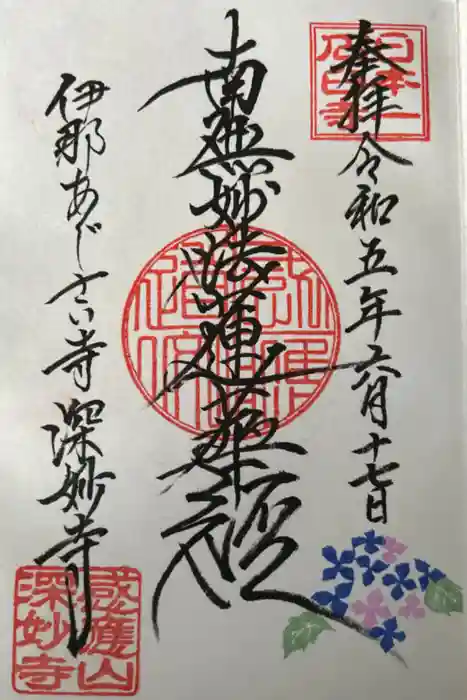 奉拝 令和五年六月十七日
南無妙法蓮華經
伊那あじさい寺 深妙寺
感應山
深妙寺